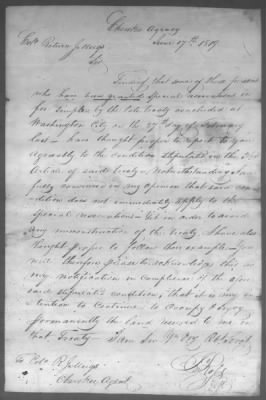 Cherokee Agency
June 17th 1819
Colo Return J. Meigs
Sir
Finding that some of those persons
who have been granted special reservations in
fee simple by the late treaty concluded at
Washington City on the 27th day of February
last have thought proper to report to you
Agreeably to the condition stipulated in the 2nd
Article of said treaty, Notwithstanding I am
fully convinced in my opinion that said con-
dition does not immediately apply to the
special reservations Yet in order to avoid
any misconstruction of the Treaty I have also
thought proper to follow their example You
will therefore please to acknowledge this as
my notification in compliance of the afore
said stipulated condition, that it is my in
tention to continue to occupy & enjoy
permanently the land reserved to me in
that Treaty I am Sir Yr Obt
To Colo R. J. Meigs
Cherokee Agent